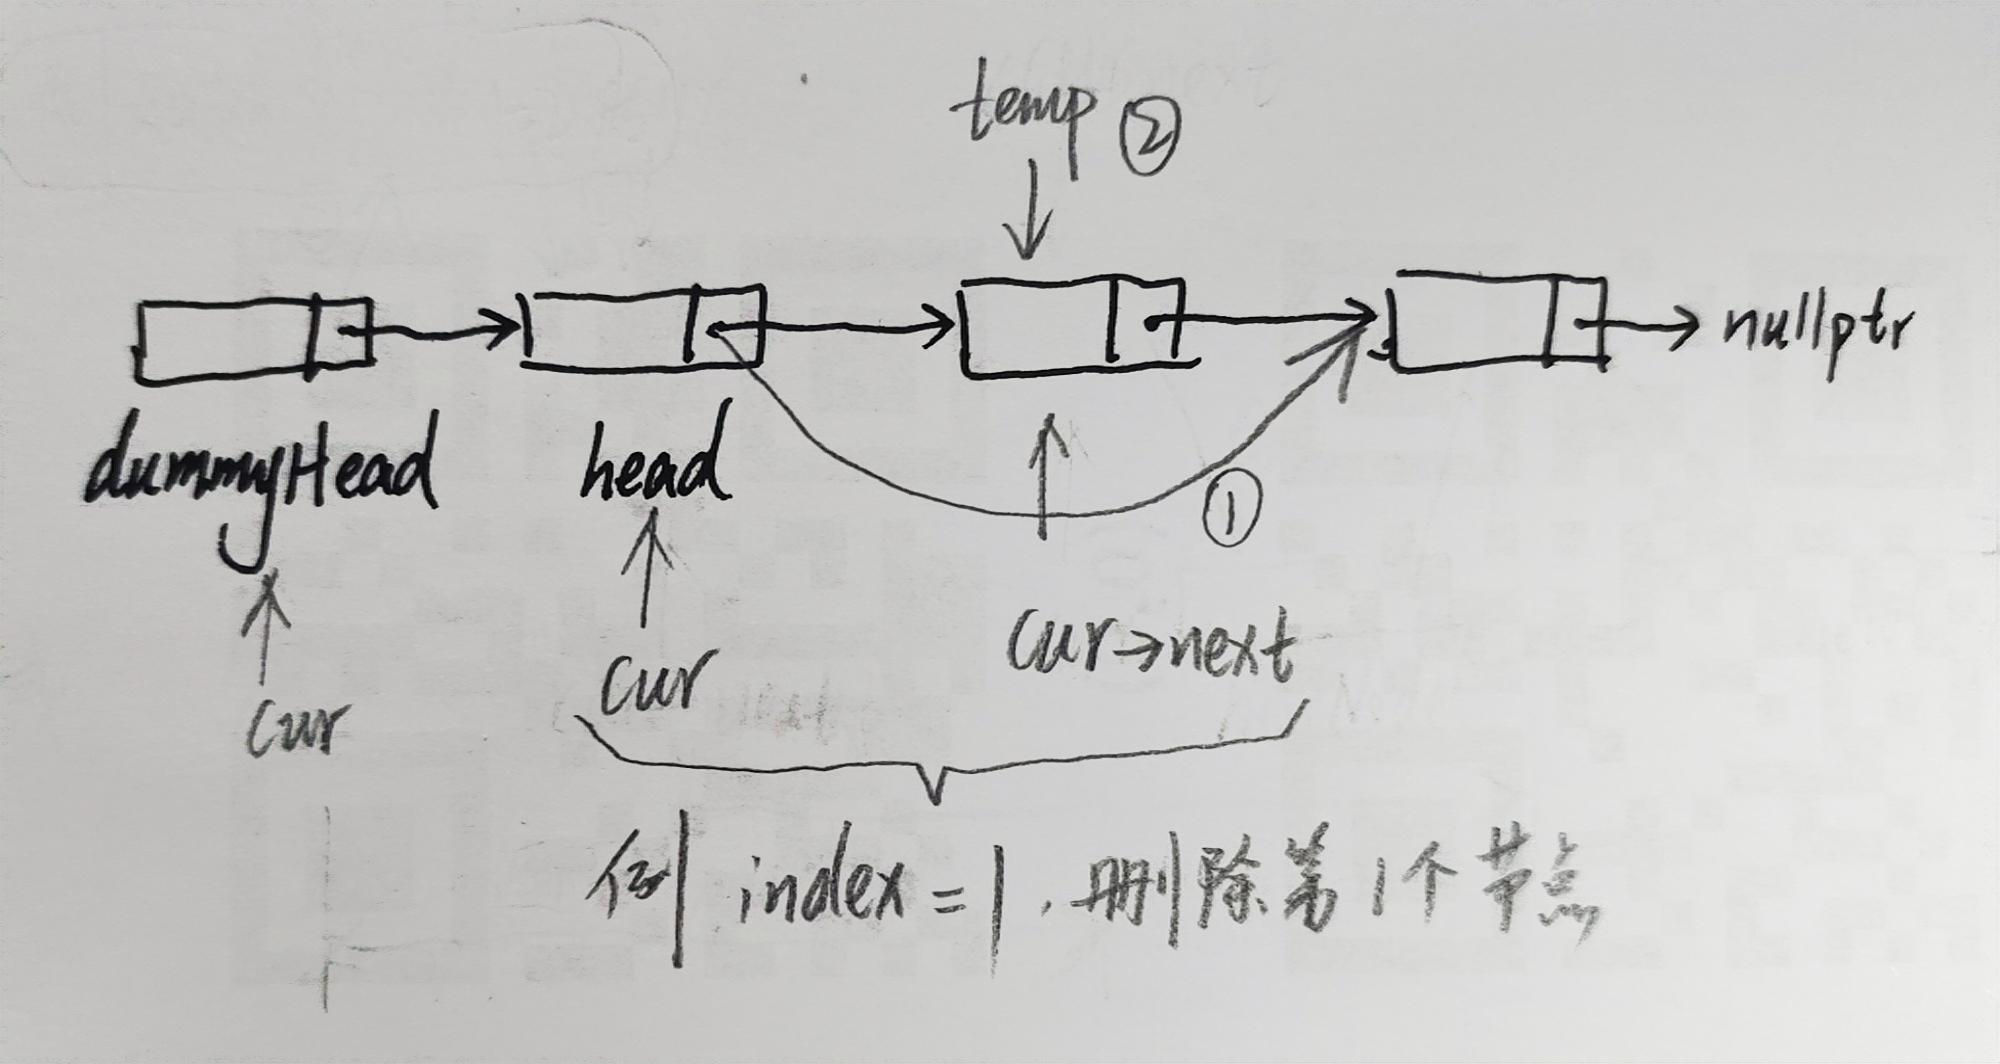 temp ②
nullptr
dummyHead
head
①
cur
cur
cur→next
例 index=1, 删除第1个节点